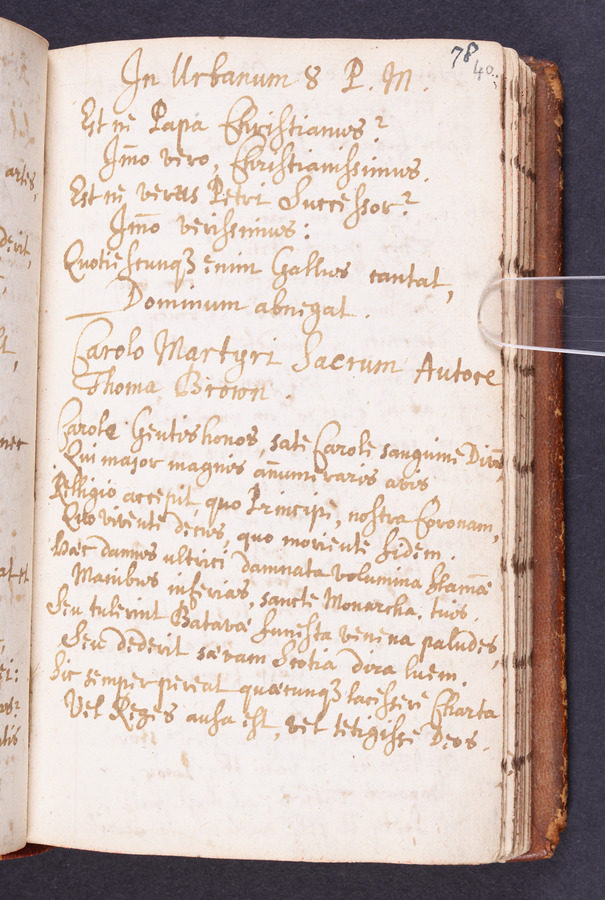 78
40.
In Urbanum 8 P. M.
Est nē Papa Christianus?
Im̄o vero, Christianissimus.
Est nē verus Petri Successor?
Im̄o verissimus:
Quotiescunqȝ enim Gallus cantat,
Dominum abnegat.
Carolo Martyri Sacrum Autore
Thoma Brown.
Carole Gentis honos, sate Carole sanguine Divûm,
Qui major magnis añumeraris avis
Relligio accepit quo Principe, nostra Coronam,
Quo vivente decus, quo moriente fidem.
Hac damus ultrici damnata volumina flammâ
Manibus inferias, sancte Monarcha, tuis.
Seu tulerint Batavæ funesta venena paludes,
Seu dederit sævam Scotia dira luem.
Sic semper pereat quæcunqȝ lacessere Charta
Vel Reges ausa est, vel tetigisse Deos.
artes,
derit,
nec
at et